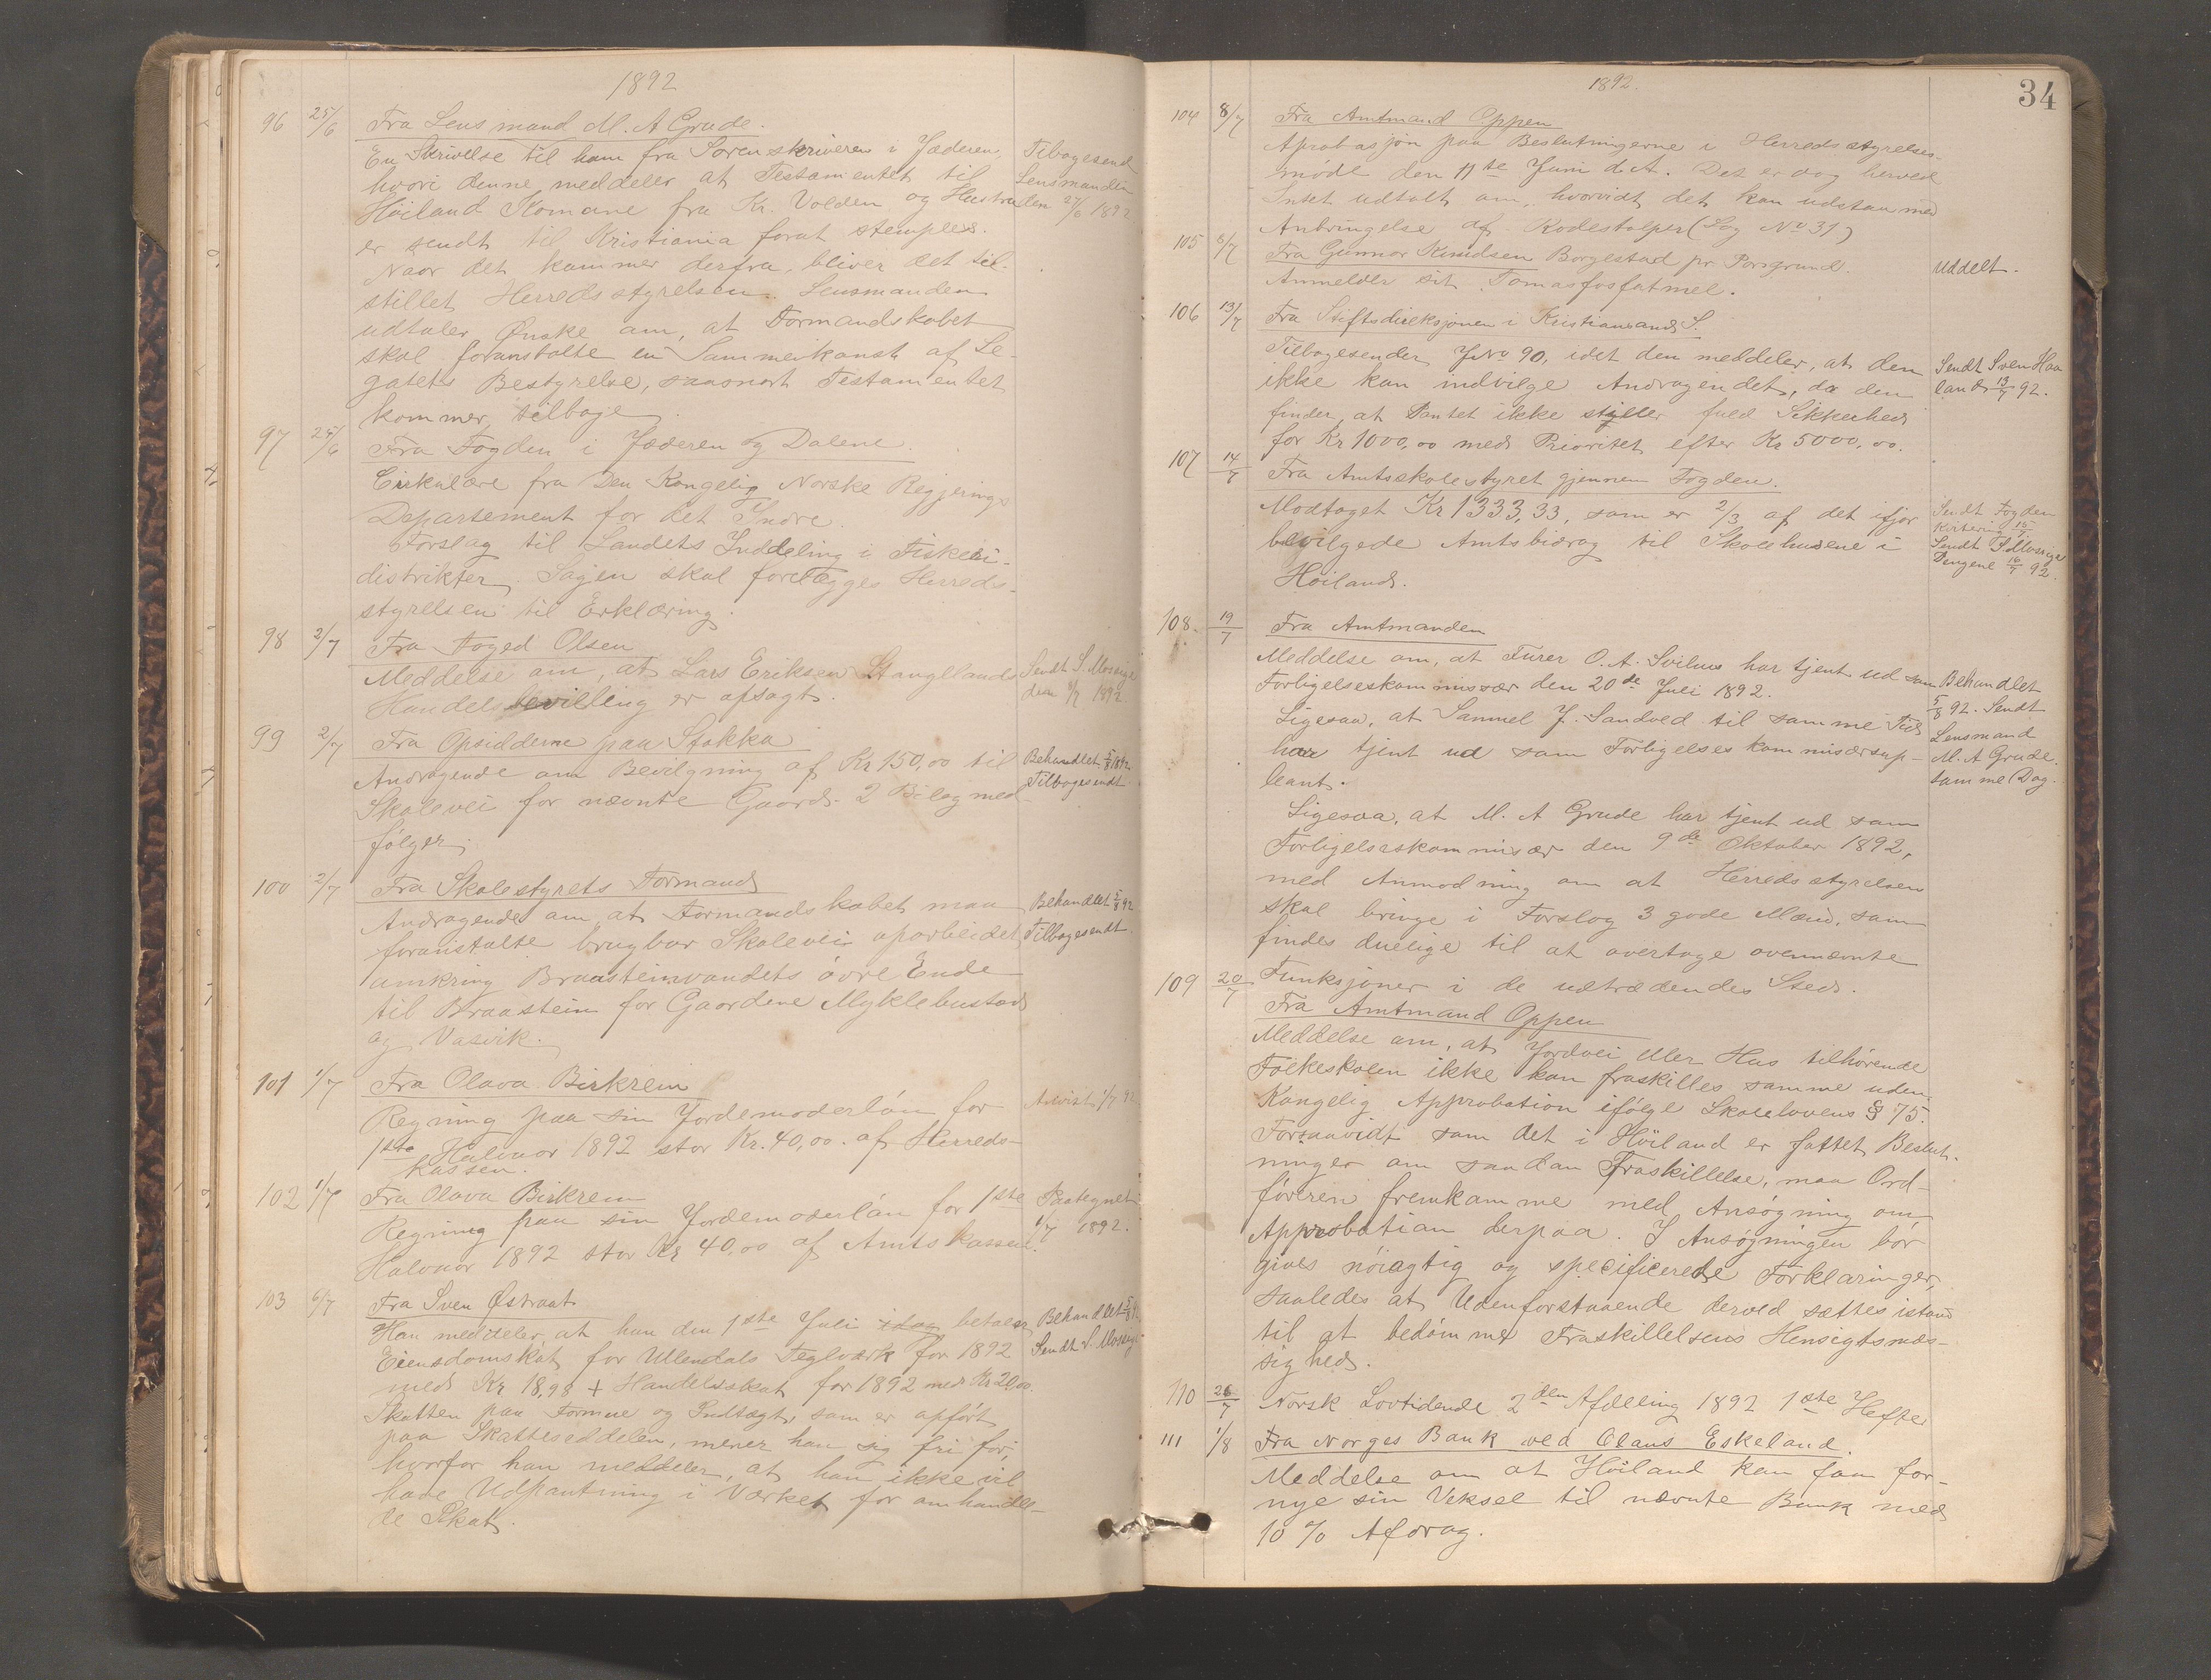 1892
96 25/6 Fra Lensmand M. A Grude.
En Skrivelse til ham fra Sorenskriveren i Jæderen,
hvori denne meddeler at Testamentet til
Höiland Komune fra Kr. Volden og Hustru
er sendt til Kristiania forat stemples.
Naar det kommer derfra, bliver det til-
stillet Herredsstyrelsen. Lensmanden
udtaler Ønske om, at Formandskabet
skal foranstalte en Sammenkomst af Le-
gatets Bestyrelse, saasnart Testamentet
kommer tilbage.
Tilbagesend
Lensmanden
den 27/6 1892
97 25/6 Fra Fogden i Jæderen og Dalene.
Cirkulære fra Den Kongelig Norske Regjerings
Departement for det Indre.
Forslag til Landets Inddeling i Fiskeri-
distrikter. Sagen skal forelægges Herreds-
styrelsen til Erklæring.
98 2/7 Fra Foged Olsen
Meddelse om, at Lars Eriksen Stanglands
Handelsbevilling er opsagt.
Sendt S. Mossige
den 1892
99 2/7 Fra Opsidderne paa Stokka
Andragende om Bevilgning af Kr 150,00 til
Skolevei for nævnte Gaard. 2 Bilag med-
følger.
Behandlet 5/8 1892
Tilbagesendt
100 2/7 Fra Skolestyrets Formand
Andragende om, at Formandskabet maa
foranstalte brugbar Skolevei oparbeidet
omkring Braasteinvandets övre Ende
til Braastein for Gaardene Myklebustad
og Vasvik.
Behandlet 5/8 92
Tilbagesendt.
101 1/7 Fra Olava Birkrem
Regning paa sin Jordemoderlön for
1ste Halvaar 1892 stor Kr. 40,00. af Herreds-
kassen.
Anvist 1/7 92
102 1/7 Fra Olava Birkrem
Regning paa sin Jordemoderlön for 1ste
Halvaar 1892 stor Kr 40,00 af Amtskassen.
Paategnet
1/7 1892.
103 6/7 Fra Sven Østraat
Han meddeler, at han den 1ste Juli idag betaler
Eiendomskat for Ullendals Teglværk for 1892
med Kr 18,98 + Handelsskat for 1892 med Kr 20,00.
Skatten paa Formue og Indtægt, som er opfört
paa Skattesedelen, mener han sig fri for,
hvorfor han meddeler, at han ikke vil
have Udpantning i Værket for omhandle-
de Skat.
Behandlet 5/8
Sendt S. Mossige
34
1892.
104 8/7 Fra Amtmand Oppen
Aprobasjon paa Beslutningerne i Herredsstyrelses-
möde den 11te Juni d.A. Det er dog herved
Intet udtalt om, hvorvidt det kan udstaa med
Anbringelse af Rodestolper (Sag No 31)
105 8/7 Fra Gunnar Knudsen Borgestad pr Porsgrund.
Anmelder sit Tomasfosfatmel.
Uddelt.
106 13/7 Fra Stiftsdireksjonen i Kristiansand S.
Tilbagesender J No 90, idet den meddeler, at den
ikke kan indvilge Andragendet, da den
finder, at Pantet ikke stiller fuld Sikkerhed
for Kr 1000,00 med Prioritet efter Kr 5000,00.
Sendt Sven Haa
land 13/7 92.
107 14/7 Fra Amtsskolestyret gjennem Fogden.
Modtaget Kr 1333,33, som er 2/3 af det ifjor
bevilgede Amtsbidrag til Skolehusene i
Höiland.
Sendt Fogden
Kvitering 15/7
Sendt S Mossige
Pengene 16/7 92.
108. 19/7 Fra Amtmanden
Meddelse om, at Furer O. A. Sviland har tjent ud som
Forligelseskommissær den 20de Juli 1892.
Ligesaa, at Samuel J. Sandved til samme Tid
har tjent ud som Forligelseskommisærsup-
leant.
Ligesaa, at M. A Grude har tjent ud som
Forligelseskommisær den 9de Oktober 1892,
med Anmodning om at Herredsstyrelsen
skal bringe i Forslag 3 gode Mænd, som
findes duelige til at overtage ovennævnte
Funksjoner i de udtrædendes Sted.
Behandlet
5/8 92. Sendt
Lensmand
M. A Grude.
samme Dag.
109 20/7 Fra Amtmand Oppen
Meddelse om, at Jordvei eller Hus tilhörende
Folkeskolen ikke kan fraskilles samme uden
Kongelig Approbation ifölge Skolelovens § 75.
Forsaavidt som det i Höiland er fattet Beslut-
ninger om saadan Fraskillelse, maa Ord-
föreren fremkomme med Ansøgning om
Approbation derpaa. I Ansøgningen bör
gives nöiagtig og specificerede Forklaringer,
saaledes at Udenforstaaende derved sættes istand
til at bedömme Fraskillelsens Hensigtsmæs-
sighed.
110 26/7 Norsk Lovtidende 2den Afdeling 1892 1ste Hefte
111 1/8 Fra Norges Bank ved Claus Eskeland.
Meddelse om at Höiland kan faa for-
nye sin Veksel til nævnte Bank med
10 % Afdrag.